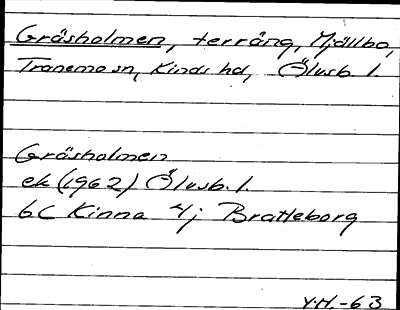 Gräsholmen, terräng, Mjällbo,
Tranemo sn, Kinds hd, Älvsb. l.
Gräsholmen
ek (1962) Älvsb. l.
6C Kinna 4j Brattleborg
Y.H.-63